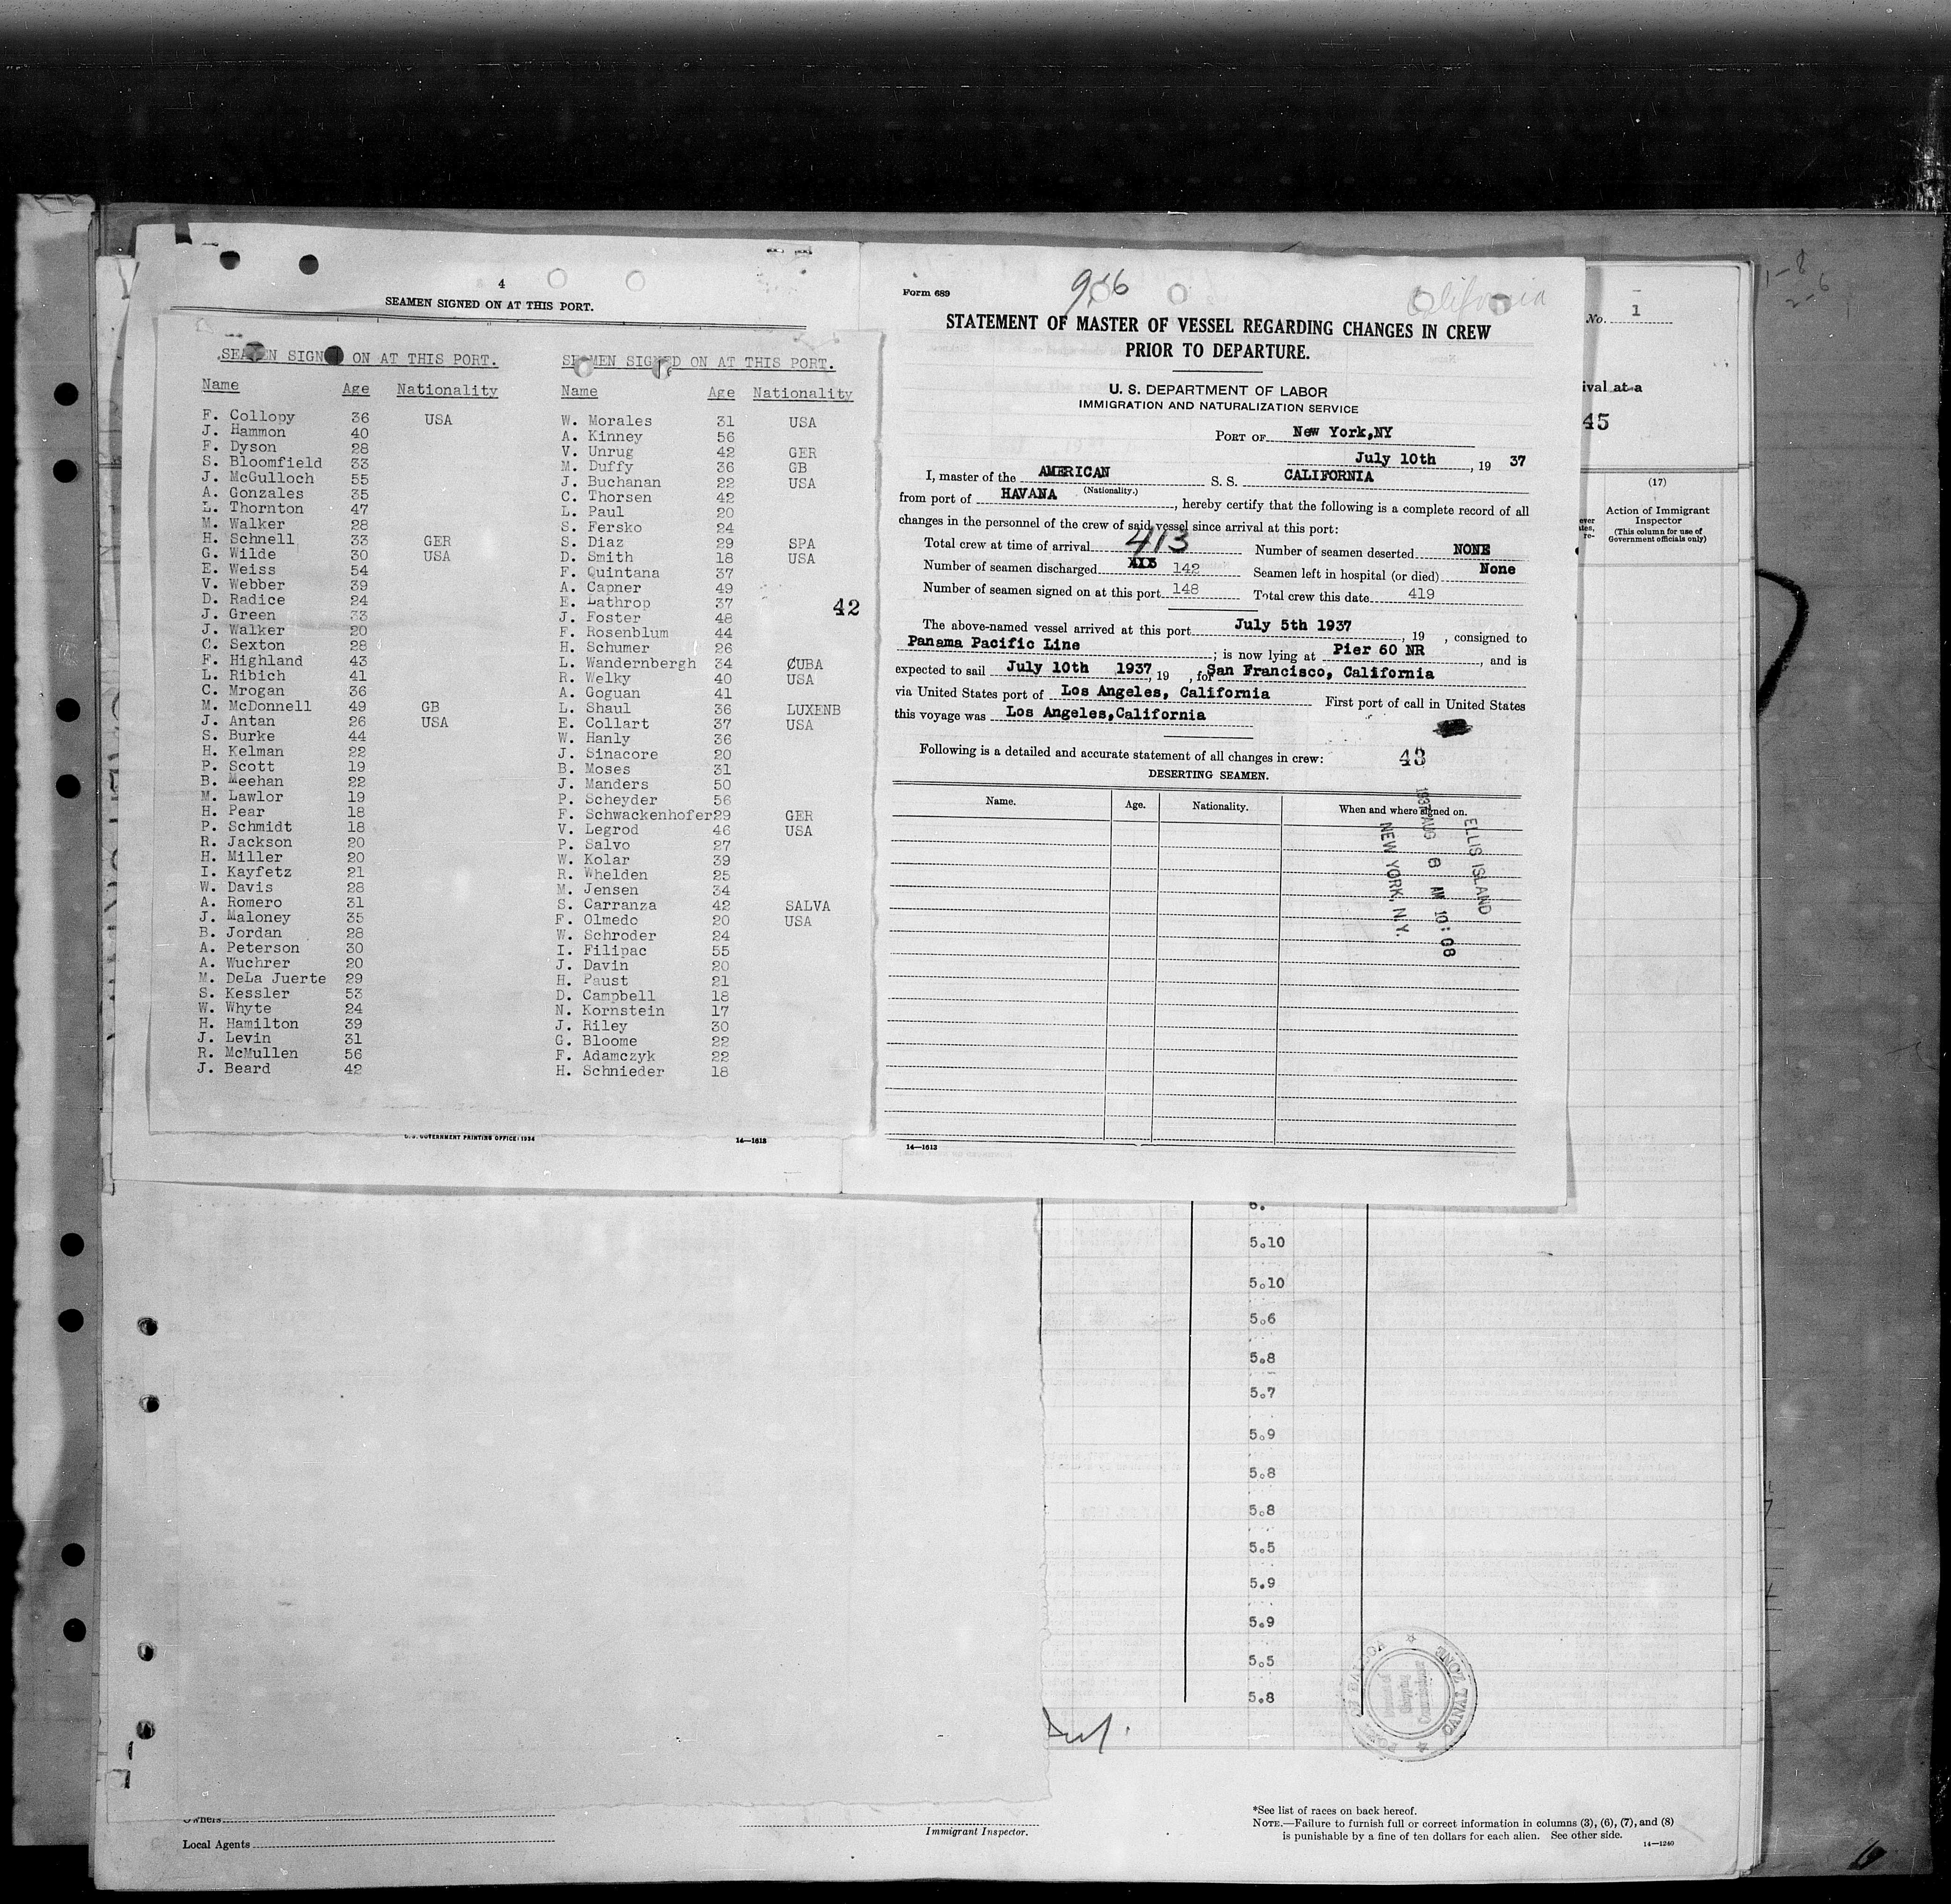 4
SEAMEN SIGNED ON AT THIS PORT.
SEAMEN SIGNED ON AT THIS PORT.
Name Age Nationality
F. Collopy 36 USA
J. Hammon 40
F. Dyson 28
S. Bloomfield 33
J. McGulloch 55
A. Gonzales 35
L. Thornton 47
M. Walker 28
H. Schnell 33 GER
G. Wilde 30 USA
E. Weiss 54
V. Webber 39
D. Radice 24
J. Green 33
J. Walker 20
C. Sexton 28
F. Highland 43
L. Ribich 41
C. Mrogan 36
M. McDonnell 49 GB
J. Antan 26 USA
S. Burke 44
H. Kelman 22
P. Scott 19
B. Meehan 22
M. Lawlor 19
H. Pear 18
P. Schmidt 18
R. Jackson 20
H. Miller 20
I. Kayfetz 21
W. Davis 28
A. Romero 31
J. Maloney 35
B. Jordan 28
A. Peterson 30
A. Wuchrer 20
M. DeLa Juerte 29
S. Kessler 53
W. Whyte 24
H. Hamilton 39
J. Levin 31
R. McMullen 56
J. Beard 42
SEAMEN SIGNED ON AT THIS PORT.
Name Age Nationality
W. Morales 31 USA
A. Kinney 56
V. Unrug 42 GER
M. Duffy 36 GB
J. Buchanan 22 USA
C. Thorsen 42
L. Paul 20
S. Fersko 24
S. Diaz 29 SPA
D. Smith 18 USA
F. Quintana 37
A. Capner 49
E. Lathrop 37
J. Foster 48
F. Rosenblum 44
H. Schumer 26
L. Wandernbergh 34 CUBA
R. Welky 40 USA
A. Goguan 41
L. Shaul 36 LUXENB
E. Collart 37 USA
W. Hanly 36
J. Sinacore 20
B. Moses 31
J. Manders 50
P. Scheyder 56
F. Schwackenhofer 29 GER
V. Legrod 46 USA
P. Salvo 27
W. Kolar 39
R. Whelden 25
M. Jensen 34
S. Carranza 42 SALVA
F. Olmedo 20 USA
W. Schroder 24
I. Filipac 55
J. Davin 20
H. Paust 21
D. Campbell 18
N. Kornstein 17
J. Riley 30
G. Bloome 22
F. Adamczyk 22
H. Schnieder 18
42
U.S. GOVERNMENT PRINTING OFFICE: 1934 14—1613
Form 689
956
California
STATEMENT OF MASTER OF VESSEL REGARDING CHANGES IN CREW
PRIOR TO DEPARTURE.
U. S. DEPARTMENT OF LABOR
IMMIGRATION AND NATURALIZATION SERVICE
PORT OF New York,NY
July 10th, 19 37
I, master of the AMERICAN S. S. CALIFORNIA
(Nationality.)
from port of HAVANA, hereby certify that the following is a complete record of all
changes in the personnel of the crew of said vessel since arrival at this port:
Total crew at time of arrival 413 Number of seamen deserted NONE
Number of seamen discharged 142 Seamen left in hospital (or died) None
Number of seamen signed on at this port 148 Total crew this date 419
The above-named vessel arrived at this port July 5th 1937, 19 , consigned to
Panama Pacific Line; is now lying at Pier 60 NR, and is
expected to sail July 10th 1937, 19 , for San Francisco, California
via United States port of Los Angeles, California First port of call in United States
this voyage was Los Angeles,California
Following is a detailed and accurate statement of all changes in crew: 43
DESERTING SEAMEN.
Name. Age. Nationality. When and where signed on.
ELLIS ISLAND
1937 AUG 6 AM 10:08
NEW YORK, N.Y.
14—1613
No. 1
ival at a
45
(17)
Action of Immigrant
Inspector
(This column for use of
Government officials only)
ever
ates,
re-
1-8
2-6
5.10
5.10
5.6
5.8
5.7
5.9
5.8
5.8
5.5
5.9
5.9
5.5
5.8
PORT OF BALBOA
CANAL ZONE
Shipping
Commissioner
Owners
Local Agents
Immigrant Inspector.
*See list of races on back hereof.
NOTE.—Failure to furnish full or correct information in columns (3), (6), (7), and (8)
is punishable by a fine of ten dollars for each alien. See other side.
14—1240